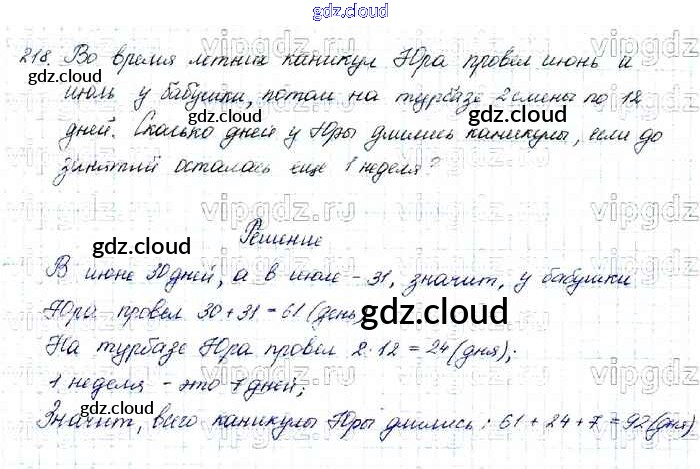 gdz.cloud
218. Во время летних каникул Юра провел июнь и
июль у бабушки, потом на турбазе 2 смены по 12
дней. Сколько дней у Юры длились каникулы, если до
занятий осталась еще 1 неделя?
Решение
В июне 30 дней, а в июле - 31, значит, у бабушки
Юра провел 30 + 31 = 61 (день)
На турбазе Юра провел 2 · 12 = 24 (дня);
1 неделя - это 7 дней;
Значит, всего каникулы Юры длились: 61 + 24 + 7 = 92 (дня)
gdz.cloud
gdz.cloud
gdz.cloud
gdz.cloud
gdz.cloud
gdz.cloud
gdz.cloud
vipgdz.ru
vipgdz.ru
vipgdz.ru